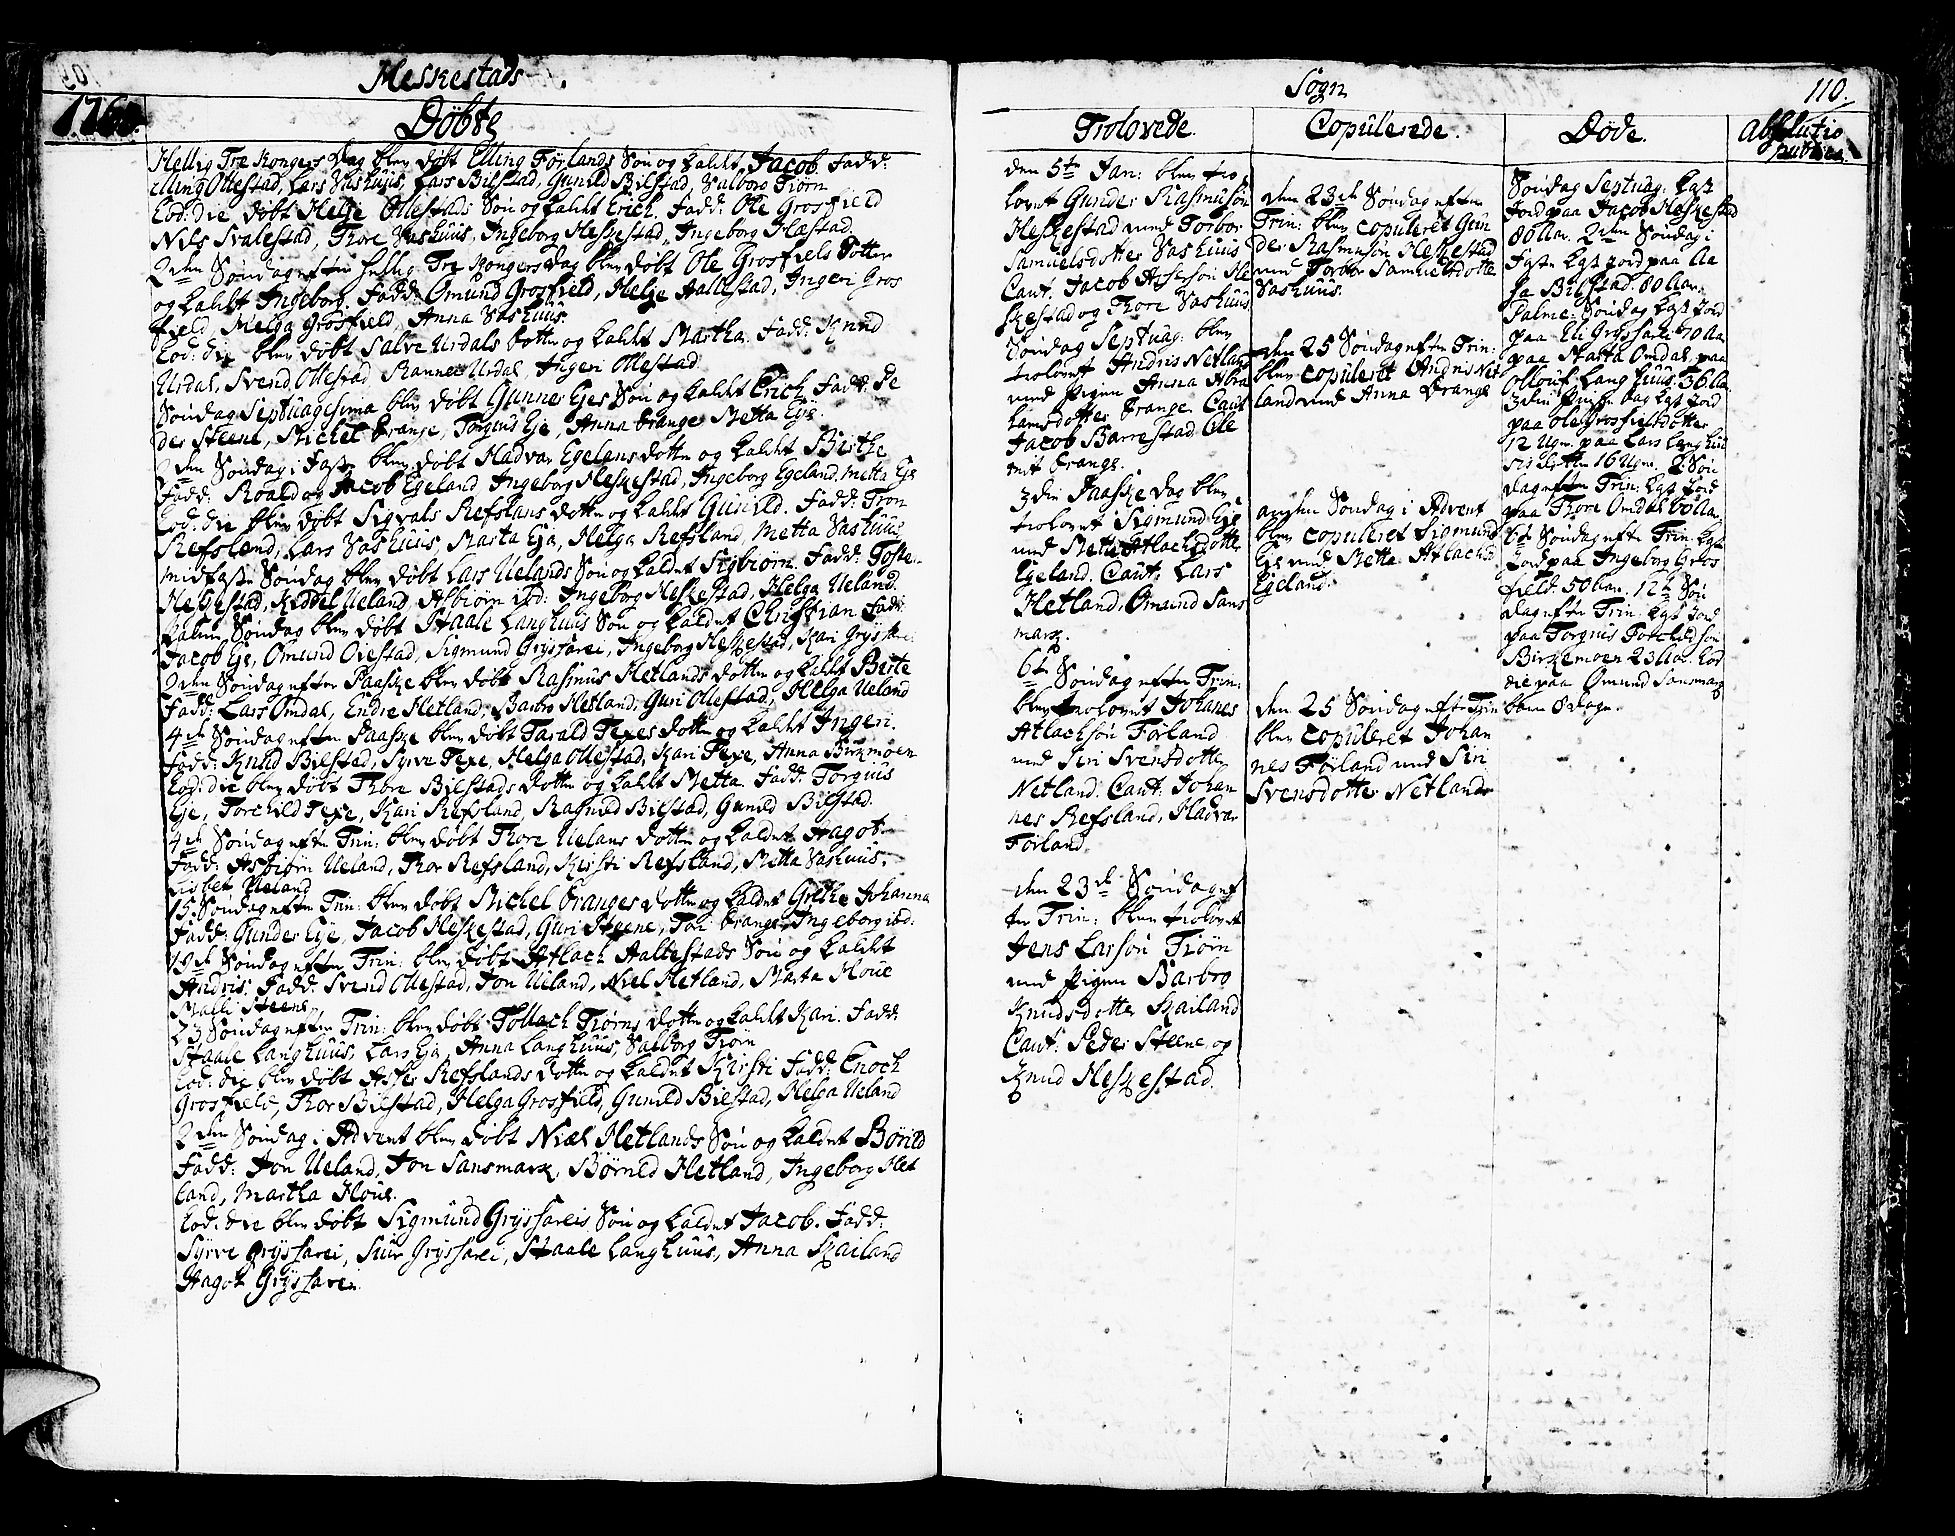 Heskestads
Sogn
110.
176
Døbte
Hellig Tre Kongers Dag blev døbt Elling Førlands Søn og kaldt Jacob. Fadd:
Elling Ollestad, Lars Vashuus, Lars Bilstad, Gunild Bilstad, Valborg Tiørn
Eod: die døbt Helje Ollestads Søn og kaldt Erich. Fadd: Ole Grosfield
Nils Svalestad, Thore Vashuus, Ingeborg Heskestad, Ingeborg
2den Søndag efter Hellig Tre Kongers Dag blev døbt Ole Grosfiels Dotter
og kaldt Ingeborg. Fadd: Omund Grosfield, Helje Aallestad, Ingeri Gros
field, Helga Grosfield, Anna Vashuus.
Eod: die blev døbt Salve Urdals Dotter og kaldt Martha. Fadd: Knud
Urdal, Svend Ollestad, Ranne Urdal, Ingeri Ollestad
Søndag Septuagesima blev døbt Gunner Ejes Søn og kaldt Erich. Fadd: Pe
der Steene, Michel Drange, Torgius Eje, Anna Drange Metta Eje.
2den Søndag i Faste blev døbt Hadvar Egelans Dotter og kaldt Berthe
Fadd: Roald og Jacob Egeland, Ingeborg Heskestad, Ingeborg Egeland, Metta Eje
Eod: die blev døbt Sigvals Refslans Dotter og kaldt Gunild. Fadd: Tron
Refsland, Lars Vashuus, Marta Eja, Helga Refsland, Metta Vashuus
Midfaste Søndag blev døbt Lars Uelands Søn og kaldet Asbiørn. Fadd: Toste
Heskestad, Keddel Ueland, Asbiørn ibd: Ingeborg Heskestad, Helga Ueland
Palme Søndag blev døbt Staale Langhuus Søn og kaldet Christian. Fadd:
Jacob Eje, Omund Ovestad, Sigmund Gryssarei, Ingeborg Heskestad, Kari Gryssarei
2den Søndag efter Paaske blev døbt Rasmus Hetlands Dotter og kaldt Berte
Fadd: Lars Omdal, Endre Hetland, Barbro Hetland, Guri Ollestad, Helga Ueland
4de Søndag efter Paaske blev døbt Tarald Texes Dotter og kaldt Ingeri.
Fadd: Knud Bilstad, Syrve Texe, Helga Ollestad, Kari Texe, Anna Birkemoen
Eod: die blev døbt Thore Bilstads Dotter og kaldt Metta. Fadd: Torguis
Eje, Torchild Texe, Kari Refsland, Ragnild Bilstad, Gunild Bilstad.
4de Søndag efter Trin: blev døbt Thore Uelans Dotter og kaldet Aagot.
Fadd: Asbiørn Ueland, Thor Refsland, Kirsti Refsland, Metta Vashuus,
Lisbet Ueland
15 Søndag efter Trin: blev døbt Michel Dranges Dotter og kaldet Grethe Johanna
Fadd: Gunder Eje, Jacob Heskestad, Guri Steene, Tori Drange, Ingeborg ibd:
19de Søndag efter Trin: blev døbt Atlach Aallestads Søn og kaldt
Andris. Fadd: Svend Ollestad, Jon Ueland, Niel Hetland, Marta Houe
Malli Steene
23 Søndag efter Trin: blev døbt Tollach Tiørns Dotter og kaldt Kari. Fadd:
Staale Langhuus, Lars Eja, Anna Langhuus, Valborg Tiørn
Eod: die blev døbt Asser Refslands Dotter og kaldet Kirsti. Fadd: Enoch
Grosfield, Thor Bilstad, Helga Grosfield, Gunild Bilstad, Helga Ueland
2den Søndag i Advent blev døbt Niels Hetlands Søn og kaldet Børild
Fadd: Jon Ueland, Jon Sansmark, Børild Hetland, Ingeborg Het
land, Martha Houe.
Eod: die blev døbt Sigmund Gryssareis Søn og kaldet Jacob. Fadd:
Syrve Gryssarei, Siur Gryssarei, Staale Langhuus, Anna Skailand
Aagot Gryssarei.
Trolovede.
den 5te Jan: blev tro
lovet Gunder Rasmusøn
Heskestad med Torbor
Samuelsdotter Vashuus
Caut. Jacob Assesøn He
skestad og Thore Vashuus
Søndag Septuag. blev
trolovet Andris Netland
med Pigen Anna Abra
hamsdotter Drange. Caut
Jacob Barrestad. Ole
mit Drange.
3die Paaske Dag blev
trolovet Sigmund Eje
med Mette Atlachsdotter
Egeland. Caut: Lars
Hetland, Omund Sans
mark.
6te Søndag efter Trin:
blev trolovet Johanes
Atlachsøn Førland
med Siri Svensdotter
Netland. Caut: Johan
nes Refsland, Hadvar
Førland.
den 23de Søndag ef
ter Trin: blev trolovet
Jens Larsøn Tiørn
med Pigen Barbro
Knudsdotter Skailand
Caut: Peder Steene, og
Knud Heskestad.
Copulerede.
den 23de Søndag efter
Trin: blev copuleret Gun
der Rasmusøn Heskestad
med Torbor Samuelsdotter
Vashuus.
den 25 Søndag efter Trin:
blev copuleret Andris Net
land med Anna Drange
anden Søndag i Advent
blev copuleret Sigmund
Eje med Metta Atlachsd
Egeland.
den 25 Søndag eft: Trin
blev copuleret Johan
nes Førland med Siri
Svensdotter Netland
Døde.
Søndag Septuag: kast
Jord paa Jacob Heskestad
80 Aar. 2den Søndag i
Faste kast Jord paa Aa
sa Bilstad. 80 Aar.
Palme-Søndag kast Jord
paa Eli Gryssarei 70 Aa
paa Marta Omdal, paa
Ollouf Langhuus. 36 Aa.
3die Pintse Dag kast Jord
paa Ole Grosfiels dotter
12 Ugr. paa Lars Langhuu
ses Dotter 16 Ugr. 2 Søn
dag efter Trin: kast Jord
paa Thore Omdal 60 Aa.
6te Søndag efter Trin: kast
Jord paa Ingeborg Gros
field. 50 Aar. 12te Søn
dag efter Trin: kast Jord
paa Torguis Torchildsøn
Birkemoen 23 Aar. Eod
die paa Omund Sansmark
barn 8 dage.
Absolutio
publica